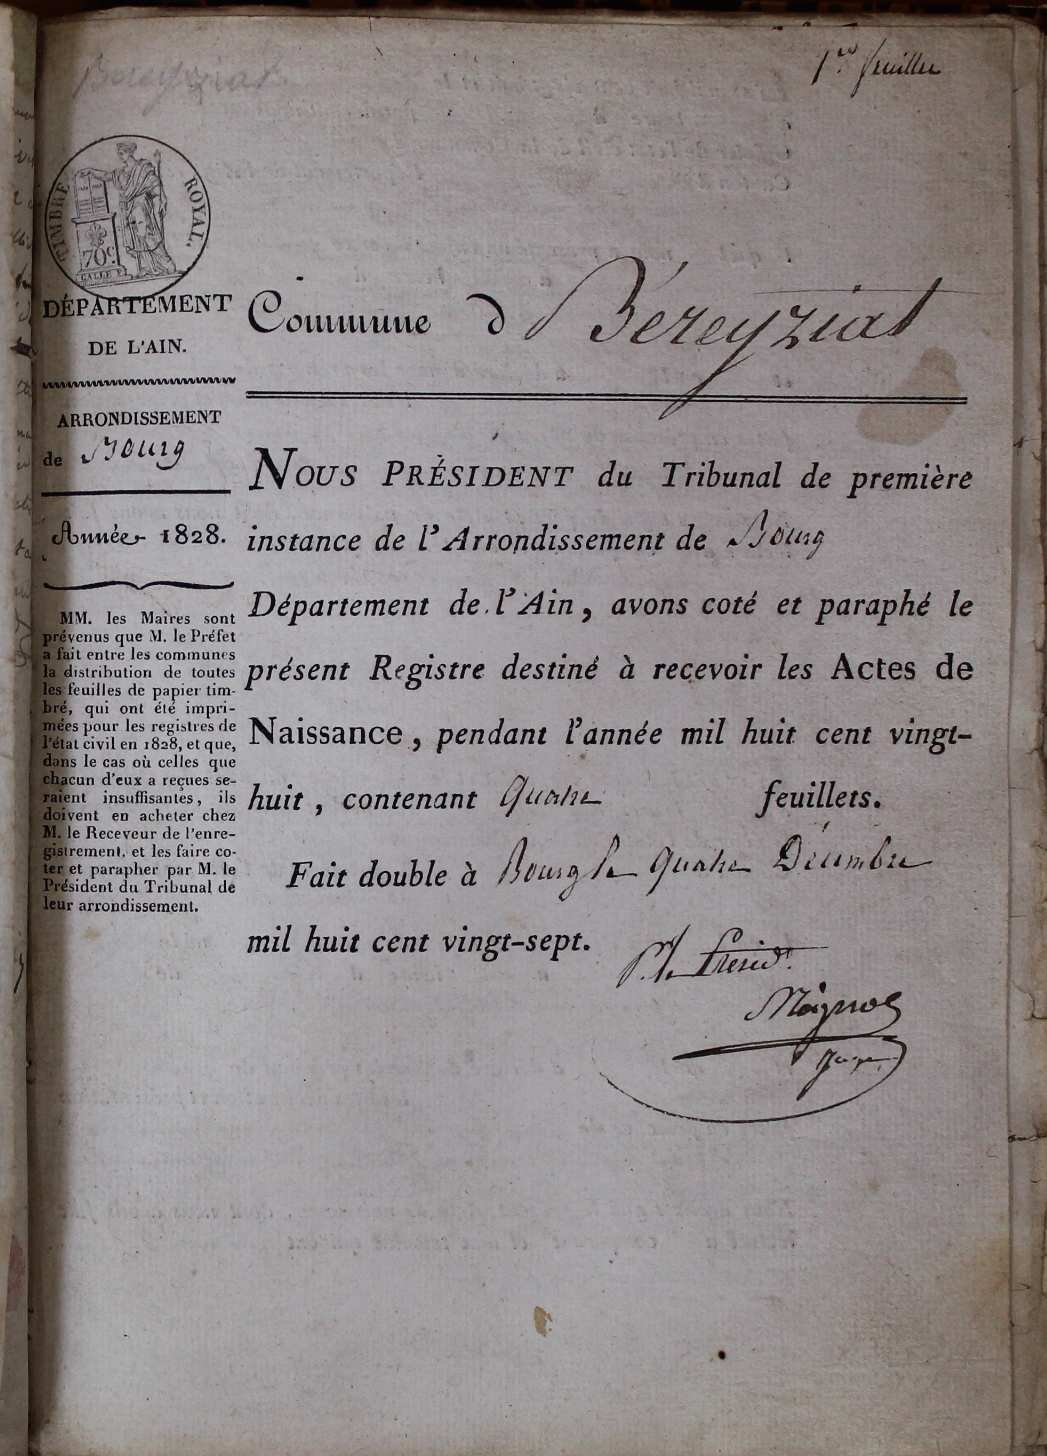 Bereyziat
1er feuillet
TIMBRE ROYAL.
70c.
DÉPARTEMENT
DE L'AIN.
ARRONDISSEMENT
de Bourg
Année 1828.
MM. les Maires sont
prévenus que M. le Préfet
a fait entre les communes
la distribution de toutes
les feuilles de papier tim-
bré, qui ont été impri-
mées pour les registres de
l'état civil en 1828, et que,
dans le cas où celles que
chacun d'eux a reçues se-
raient insuffisantes, ils
doivent en acheter chez
M. le Receveur de l'enre-
gistrement, et les faire co-
ter et parapher par M. le
Président du Tribunal de
leur arrondissement.
Commune d Béreyziat
NOUS PRÉSIDENT du Tribunal de première
instance de l'Arrondissement de Bourg
Département de l'Ain, avons coté et paraphé le
présent Registre destiné à recevoir les Actes de
Naissance, pendant l'année mil huit cent vingt-
huit, contenant quatre feuillets.
Fait double à Bourg le quatre Décembre
mil huit cent vingt-sept.
P. le Présid.t
juge